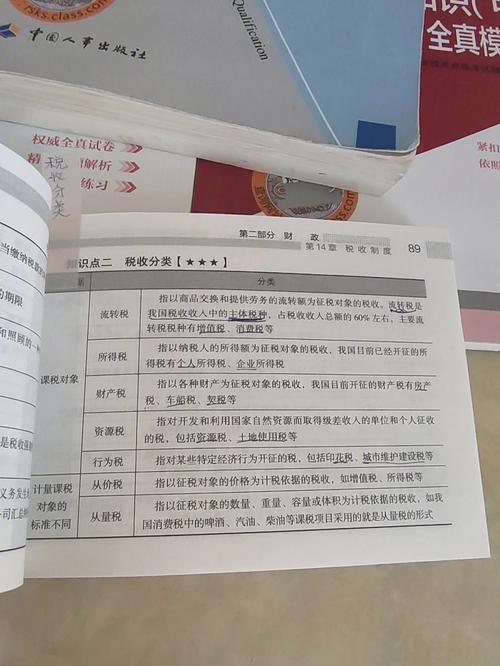 rsks.class.com
Qualification
中国人事出版社
全真模
权威全真试卷
精
解析
练习
税收分类
紧扣
依照
第二部分 财 政
第14章 税收制度 89
知识点二 税收分类【★★★】
据 分类
课税对象
流转税 指以商品交换和提供劳务的流转额为征税对象的税收。流转税是
我国税收收入中的主体税种，占税收收入总额的60%左右，主要流
转税税种有增值税、消费税等
所得税 指以纳税人的所得额为征税对象的税收，我国目前已经开征的所
得税有个人所得税、企业所得税
财产税 指以各种财产为征税对象的税收，我国目前开征的财产税有房产
税、车船税、契税等
资源税 指对开发和利用国家自然资源而取得级差收入的单位和个人征收
的税，包括资源税、土地使用税等
行为税 指对某些特定经济行为开征的税，包括印花税、城市维护建设税等
计量课税
对象的
标准不同
从价税 指以征税对象的价格为计税依据的税收，如增值税、所得税等
从量税 指以征税对象的数量、重量、容量或体积为计税依据的税收，如我
国消费税中的啤酒、汽油、柴油等课税项目采用的就是从量税的形式
当缴纳税款
的期限
和照顾的一种
是税收强制
义务发生
公司汇总纳